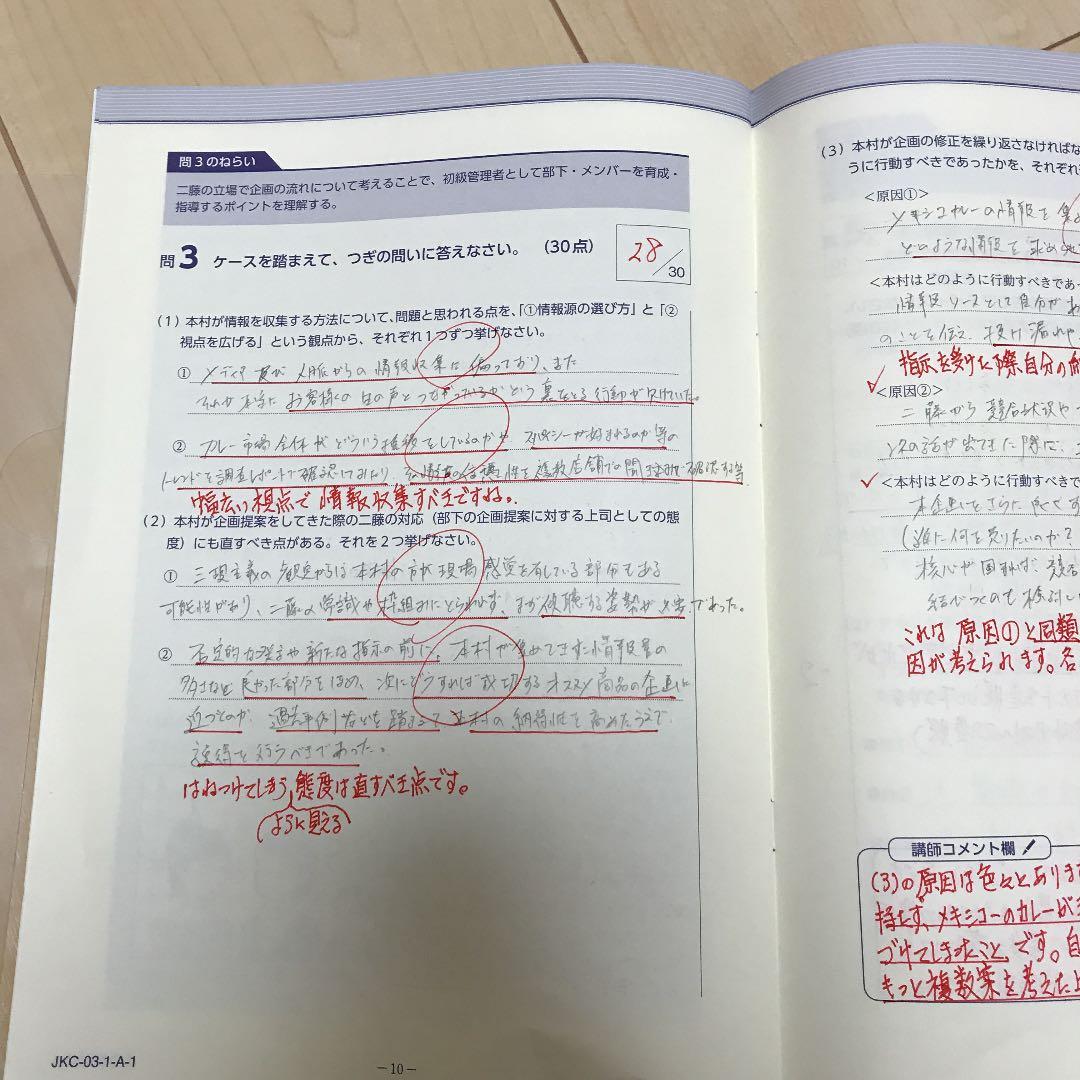 問3のねらい
二藤の立場で企画の流れについて考えることで、初級管理者として部下・メンバーを育成・
指導するポイントを理解する。
問3 ケースを踏まえて、つぎの問いに答えなさい。（30点）
28/30
（1）本村が情報を収集する方法について、問題と思われる点を、「①情報源の選び方」と「②
視点を広げる」という観点から、それぞれ1つずつ挙げなさい。
① メディア及び人脈からの情報収集に偏っており、また
それが本当にお客様の生の声とつながっているかという裏をとる行動が欠けていた。
② カレー市場全体がどういう推移をしているのかや、スパイシーが好まれるのか等の
トレンドを調査レポートで確認してみたり、その情報の信憑性を複数店舗での聞き込みで確認する等
幅広い視点で情報収集すべきですね。
（2）本村が企画提案をしてきた際の二藤の対応（部下の企画提案に対する上司としての態
度）にも直すべき点がある。それを2つ挙げなさい。
① 三現主義の観点からは本村の方が現場感覚を有している部分もある
可能性があり、二藤の常識や枠組みにとらわれず、まず傾聴する姿勢が必要であった。
② 否定的な発言や新たな指示の前に、本村が集めてきた情報量の
多さなど良かった部分をほめ、次にどうすれば成功するオススメ商品の企画に
近づくのか 過去事例などを踏まえて 本村の納得性を高めたうえで
説得を行うべきであった。
はねつけてしまう態度は直すべき点です。
ように見える
JKC-03-1-A-1
－10－
（3）本村が企画の修正を繰り返さなければな
うに行動すべきであったかを、それぞれ
＜原因①＞
メキシコカレーの情報を集
どのような情報を求め
＜本村はどのように行動すべきであっ
情報ソースとして自分が
のことを伝え、投げ漏れや
指示を受けた際、自分の
＜原因②＞
二藤から競合状況や
ンスの話が出てきた際に、
＜本村はどのように行動すべきで
本企画をさらに良くす
（誰に何を売りたいのか？
核心が固まれば、競合
結びつくのも検討し
これは原因①と同類
因が考えられます。各
講師コメント欄
(3)の原因は色々とあります
持たず、メキシコーのカレーが
づけてしまったこと、です。自
もっと複数案を考えた上